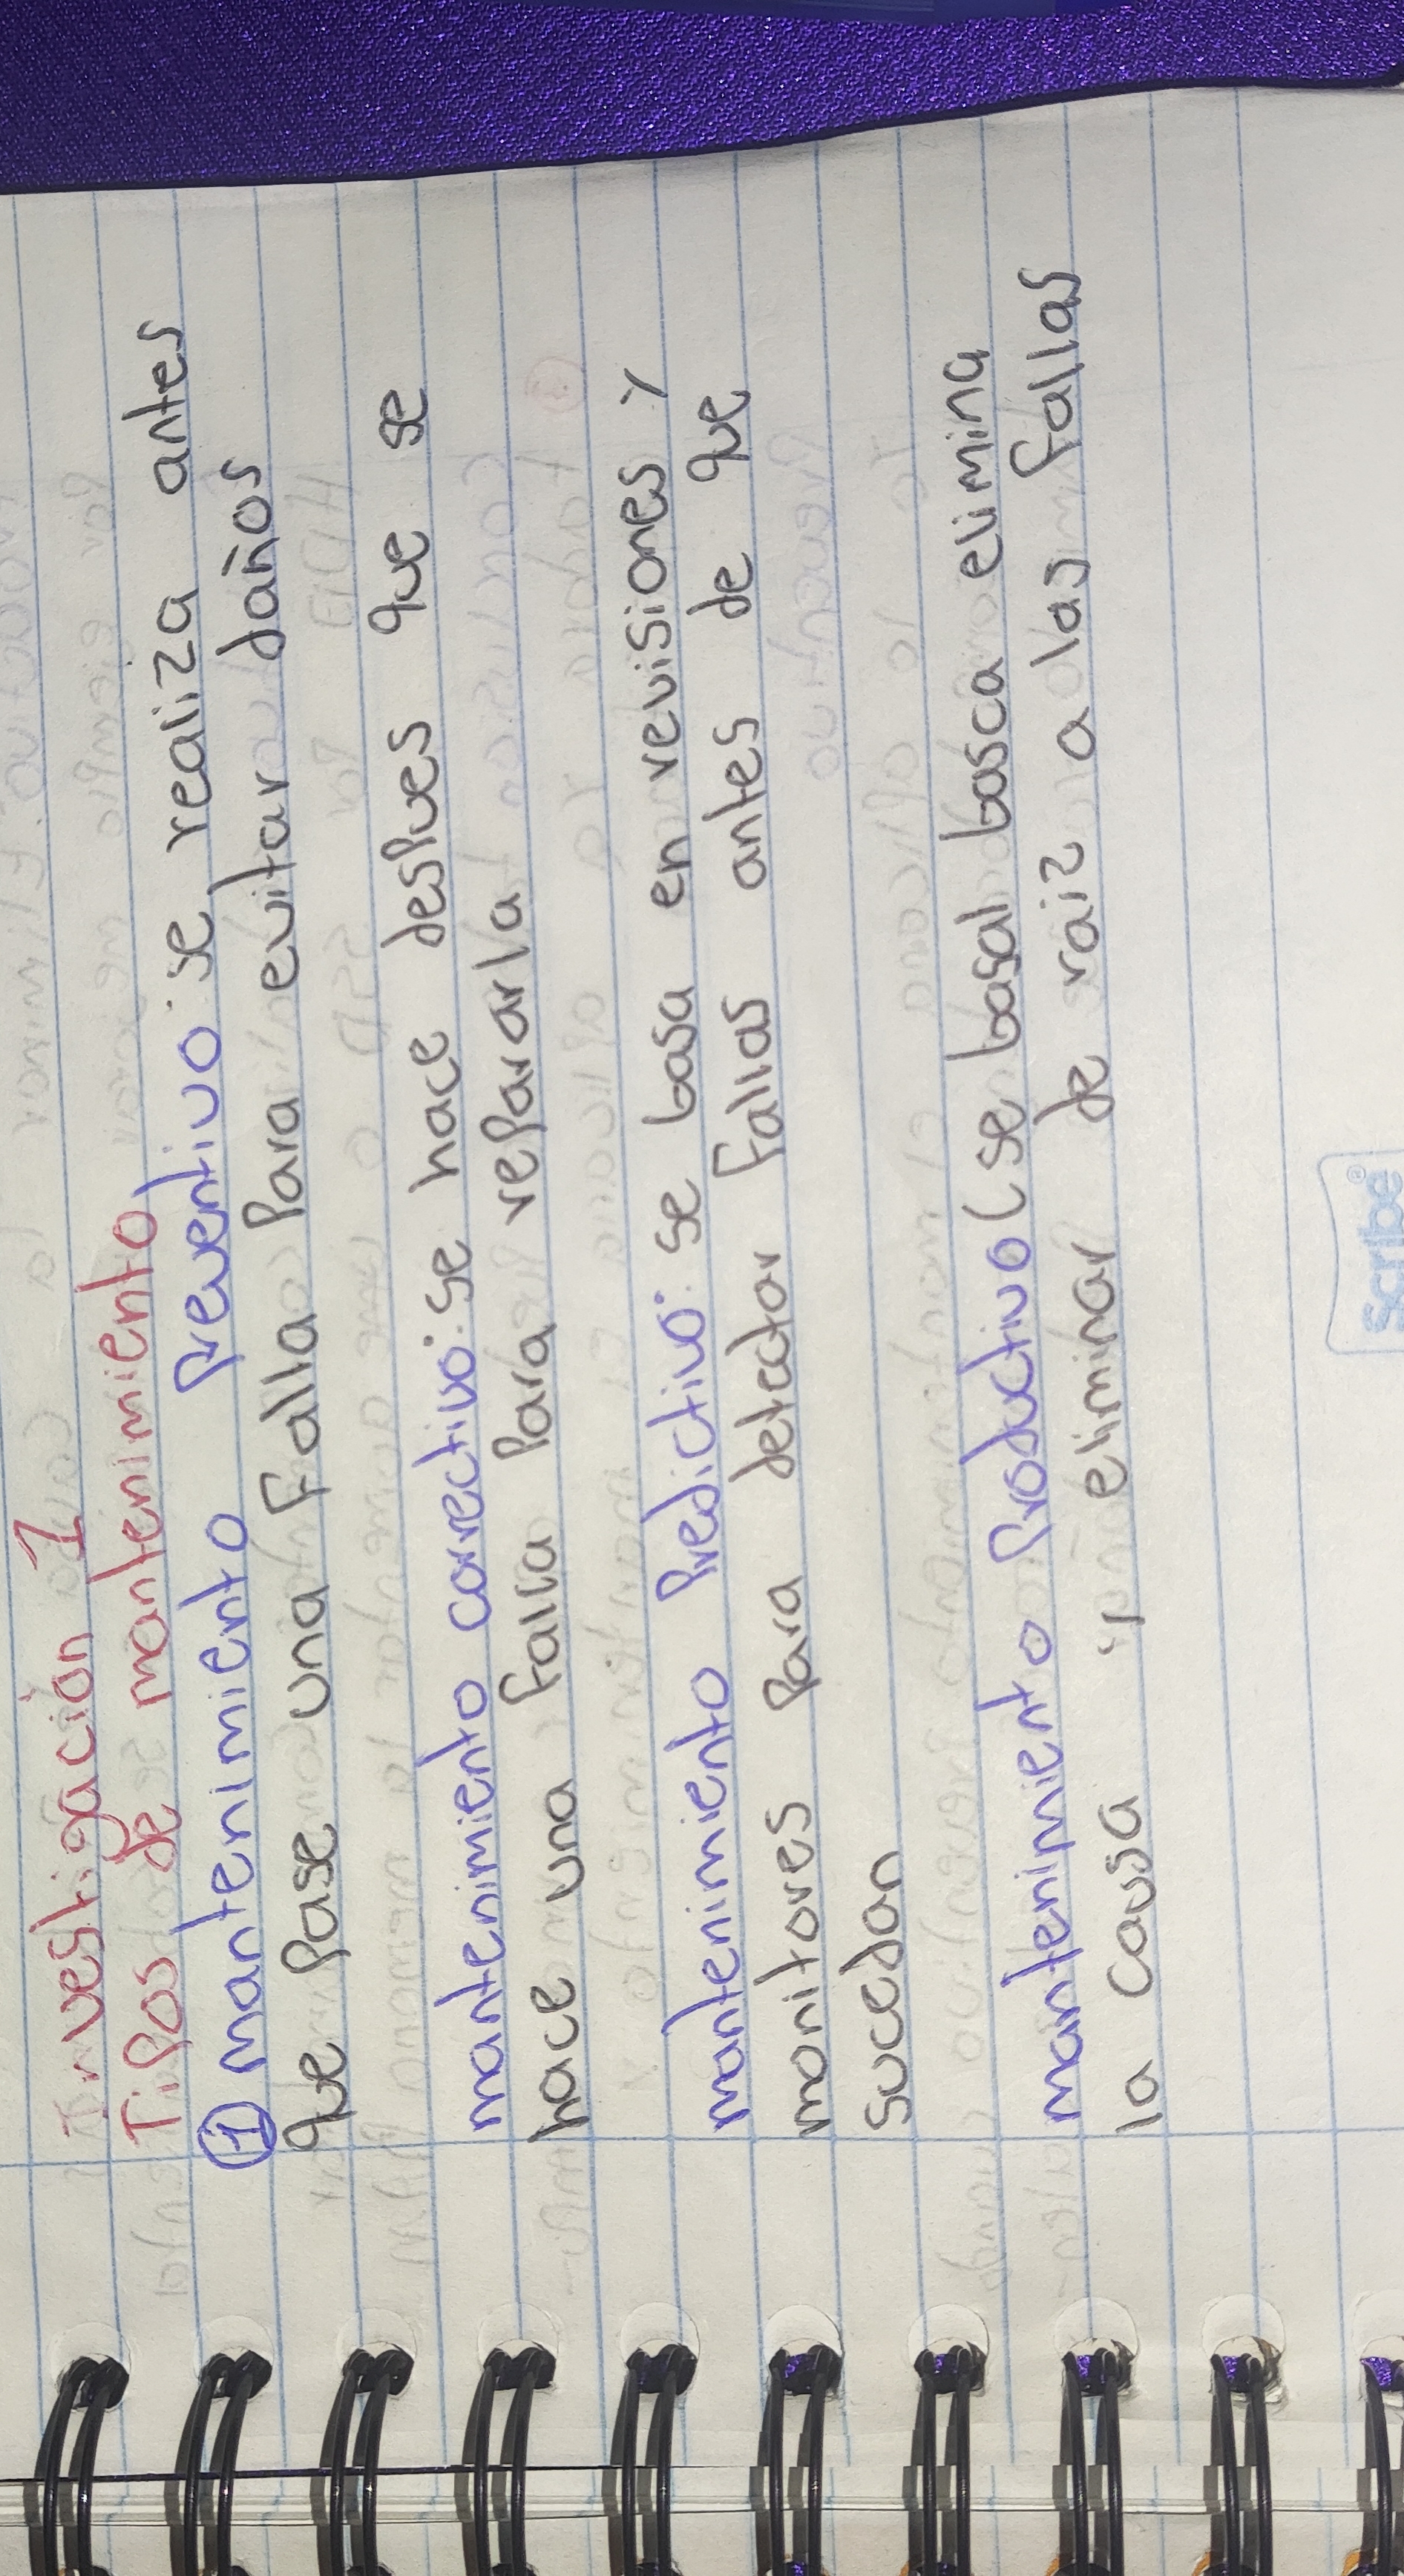 Investigación 1
Tipos de mantenimiento
① mantenimiento Preventivo: se realiza antes
que Pase una Falla Para evitar daños
mantenimiento correctivo: se hace desPues que se
hace una Falla Para rePararla
mantenimiento Predictivo: se basa en revisiones y
monitores Para detectar Fallas antes de que
sucedan
mantenimiento Productivo (se basa) busca elimina
la causa y eliminar de raiz a las Fallas
Scribe®